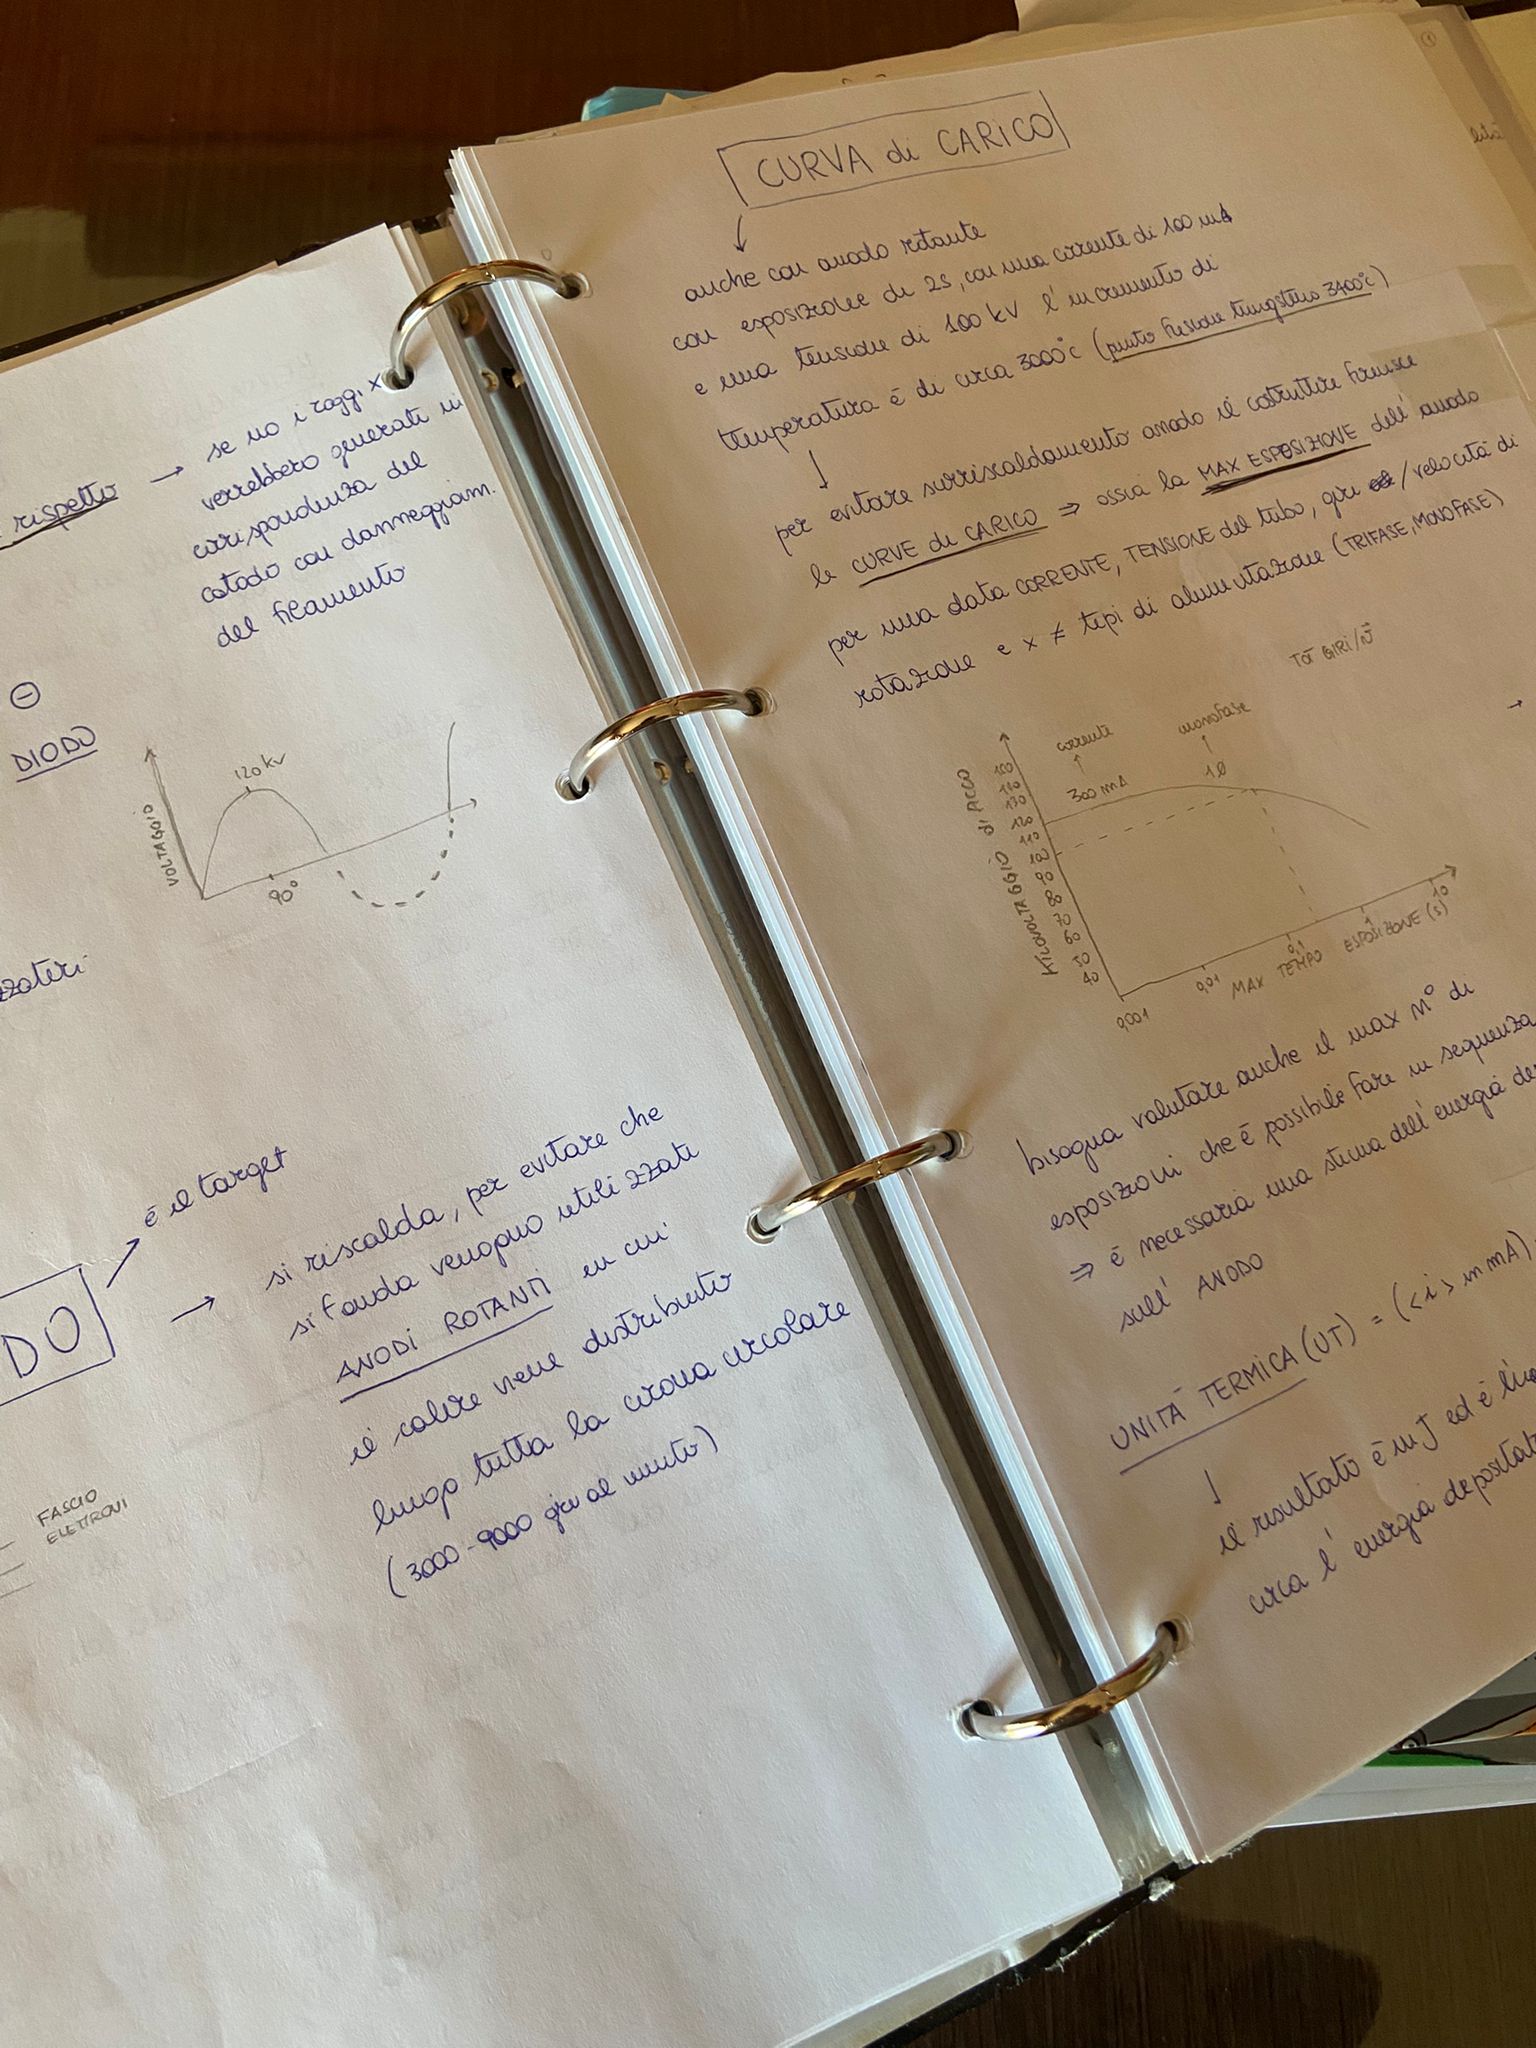 rispetto → se no i raggi x
verrebbero generati in
corrispondenza del
catodo con danneggiam.
del filamento
⊖
DIODO
VOLTAGGIO
120 kV
90°
è il target
DO
→ si riscalda, per evitare che
si fonda vengono utilizzati
ANODI ROTANTI in cui
il calore viene distribuito
lungo tutta la corona circolare
(3000-9000 giri al minuto)
FASCIO
ELETTRONI
1
CURVA di CARICO
anche con anodo rotante
con esposizione di 2s, con una corrente di 100 mA
e una tensione di 100 kV l'incremento di
temperatura è di circa 3000°C (punto fusione tungsteno 3400°C)
per evitare surriscaldamento anodo il costruttore fornisce
le CURVE di CARICO ⇒ ossia la MAX ESPOSIZIONE dell'anodo
per una data CORRENTE, TENSIONE del tubo, giri /velocità di
rotazione e x ≠ tipi di alimentazione (TRIFASE, MONOFASE)
GIRI/
corrente
monofase
300 mA
1Ø
KILOVOLTAGGIO di PICCO
130
120
110
100
90
80
70
60
50
40
0,001
0,01
0,1
1
10
MAX TEMPO ESPOSIZIONE (s)
bisogna valutare anche il max n° di
esposizioni che è possibile fare in sequenza
⇒ è necessaria una stima dell'energia
sull'ANODO
UNITÀ TERMICA (UT) = (<i> in mA)
il risultato è in J ed è
circa l'energia